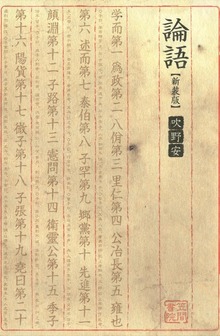 論語
【新装版】
吹野安
学而第一 為政第二 八佾第三 里仁第四 公冶長第五 雍也
第六 述而第七 泰伯第八 子罕第九 郷黨第十 先進第十一
顔淵第十二 子路第十三 憲問第十四 衛靈公第十五 季子
第十六 陽貨第十七 微子第十八 子張第十九 堯曰第二十
笠間書院